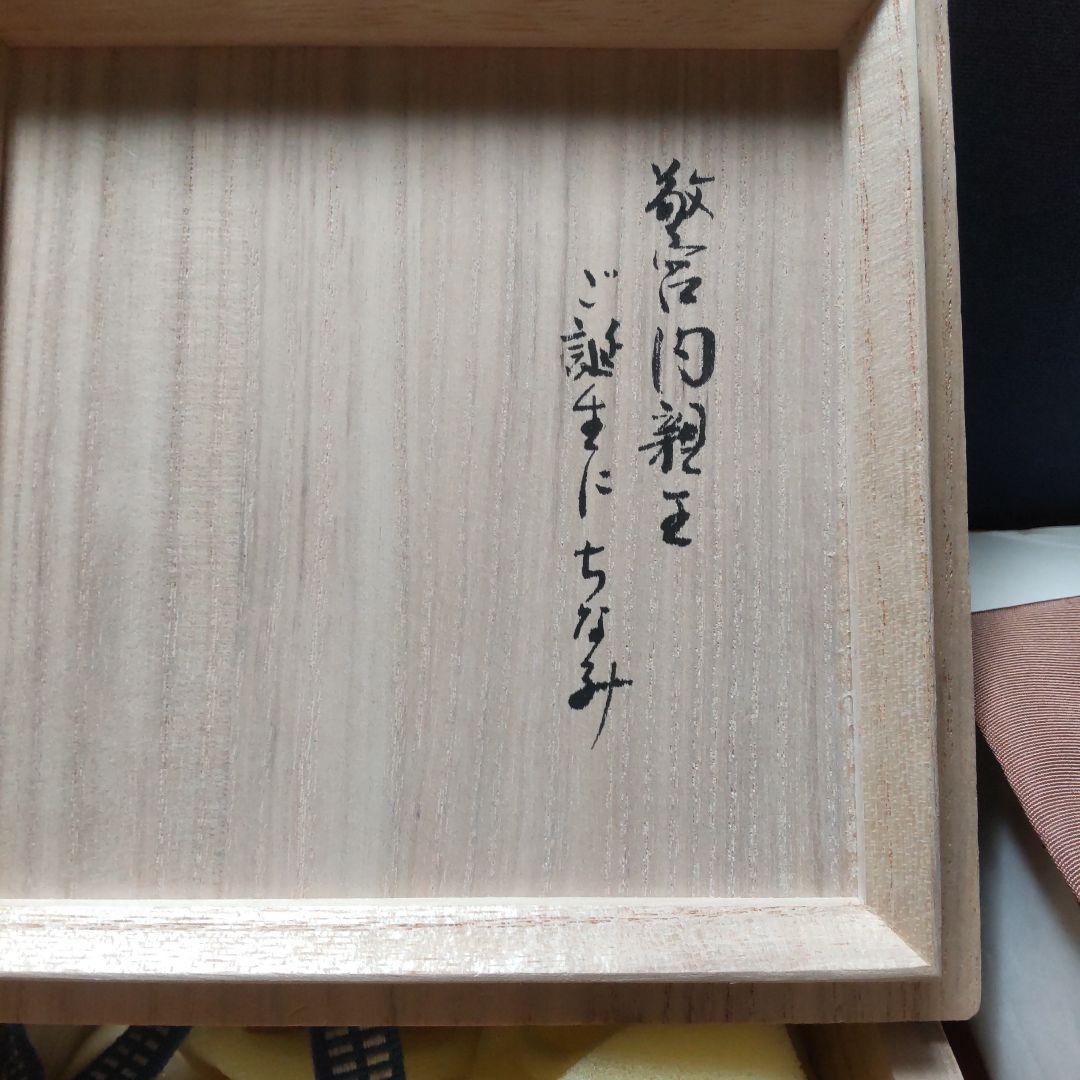 敬宮内親王
ご誕生にちなみ